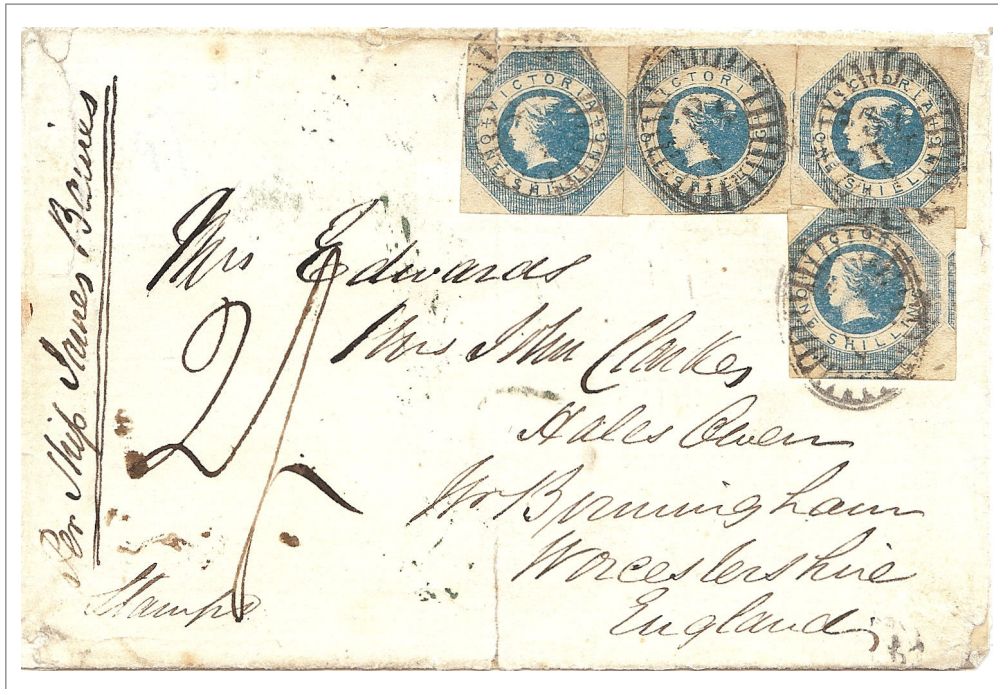 Per Ship James Baines
VICTORIA ONE SHILLING
VICTORIA ONE SHILLING
VICTORIA ONE SHILLING
VICTORIA ONE SHILLING
Mrs Edwards
2/-
Mrs John Clarkes
Hales Owen
Nr Byrmingham
Worcestershire
England
Stamps